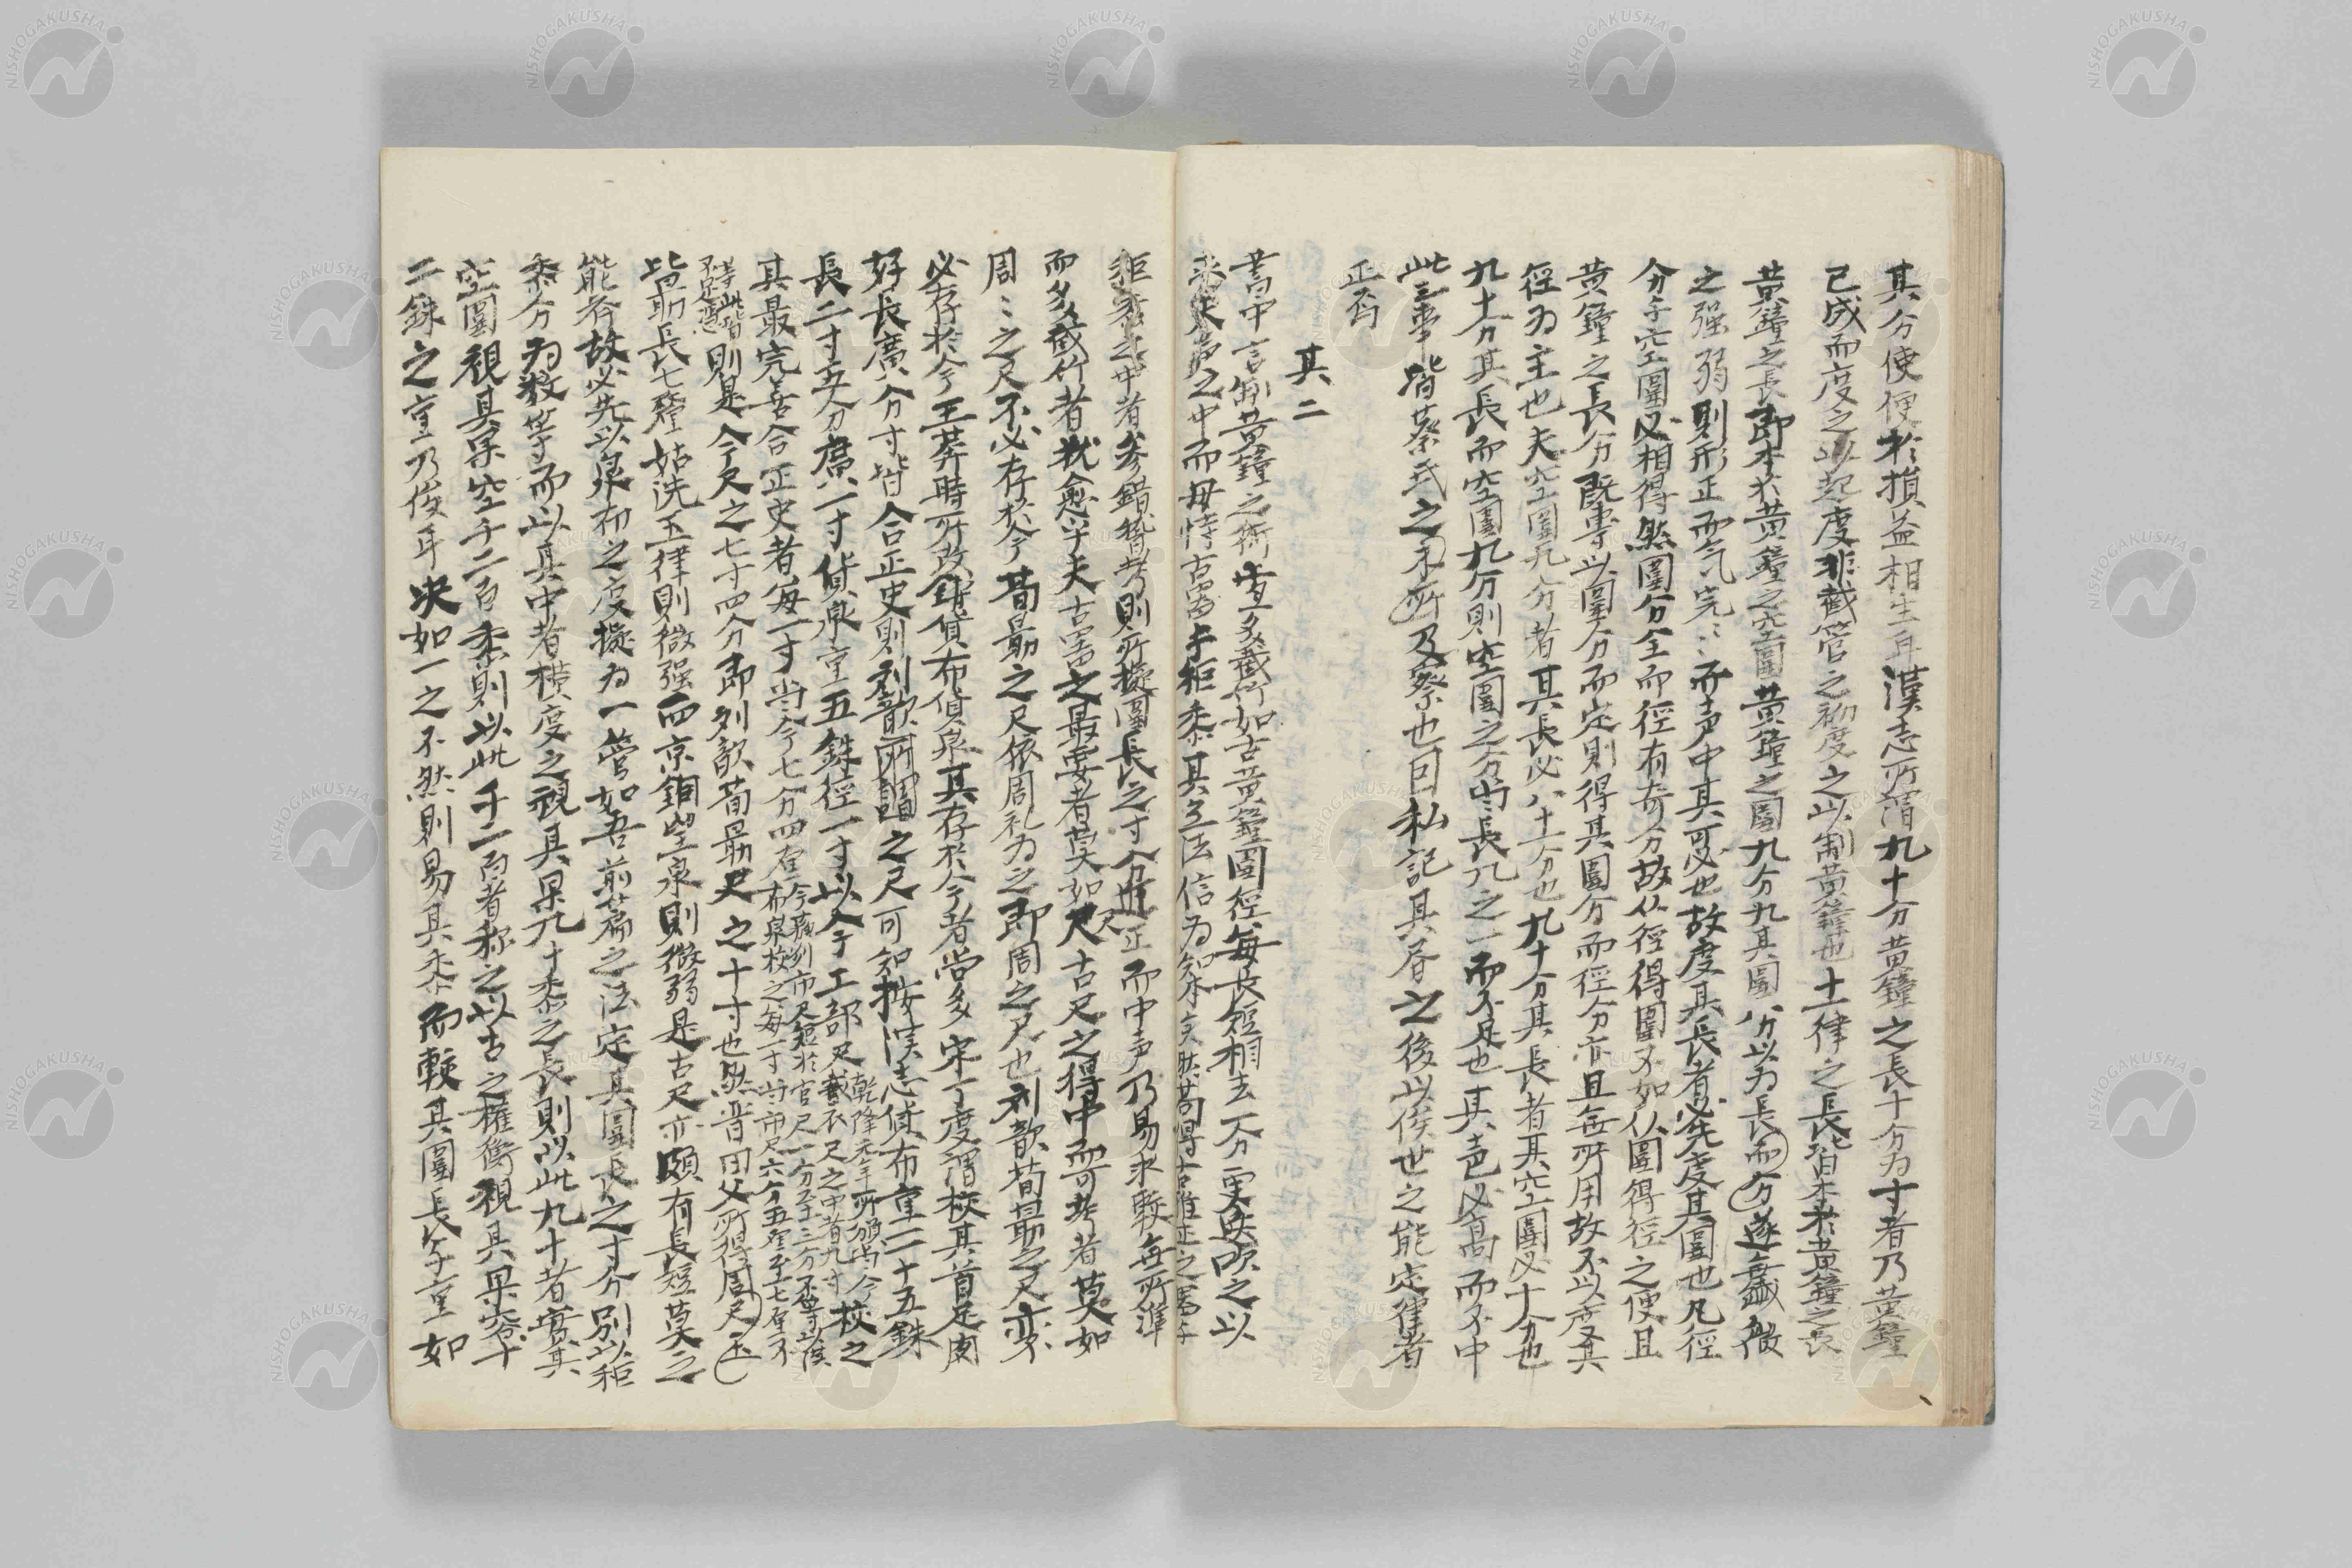 其分使便於損益相生耳漢志所謂九十分黃鐘之長十分为寸者乃黃鐘
已成而度之以起度非截管之初度之以制黃鐘也十二律之長皆本於黃鐘之長
黃鐘之長即本於黃鐘之空圍黃鐘之圍九分九其圍八分以为長而分遂無盈微
之强弱則形正而气完〻而声中其可必也故度其長者必先度其圍也凡徑
分乎空圍必相得然圍分全而徑有奇分故从徑得圍不如从圍得徑之便且
黃鐘之長分既專以圍分而定則得其圍分而徑分亦且無所用故不以度其
徑为主也夫空圍九分者其長必八十一分也九十分其長者其空圍必十分也
九十分其長而空圍九分則空圍之分當長九之一而不足也其声必高而不中
此三事皆蔡氏之未所及察也因私記其眘之後以俟世之能定律者
正焉
其二
書中言制黃鐘之術當多截竹如古黃鐘圍徑每長短相去一分更迭吹之以
求声之中而毋恃古器与秬黍其立法信为知本矣然苟得古雅正之器与
秬黍之中者參錯替考則所擬圍長之寸分近正而中声乃易求較無所準
而多截竹者猶愈乎夫古器之最要者莫如尺古尺之得中而可考者莫如
周〻之尺不必存於今荀勗之尺依周礼为之即周之尺也刘歆荀勗之尺亦
必存於今王莽時所改鑄貨布貨泉其存於今者尚多宋丁度謂校其首足肉
好長廣分寸皆合正史則刘歆所謂之尺可知按漢志貨布重二十五銖
長二寸五分廣一寸貨泉重五銖徑一寸以今工部尺校之
其最完善合正史者每一寸當今七分四厘
則是今尺之七寸四分即刘歆荀勗尺之十寸也然晋田父所得周尺玉
皆勗長七釐姑洗玉律則微强西京銅望臬則微弱是古尺亦頗有長短莫之
能齐故必先以泉布之度擬为一管如吾前篇之法定其圍長之寸分别以秬
黍分为数等而以其中者横度之視其果九十黍之長則以此九十者實其
空圍視其果空千二百黍則以此千二百者称之以古之權衡視其果容十
二銖之重乃後耳决如一之不然則易其黍而較其圍長与重如